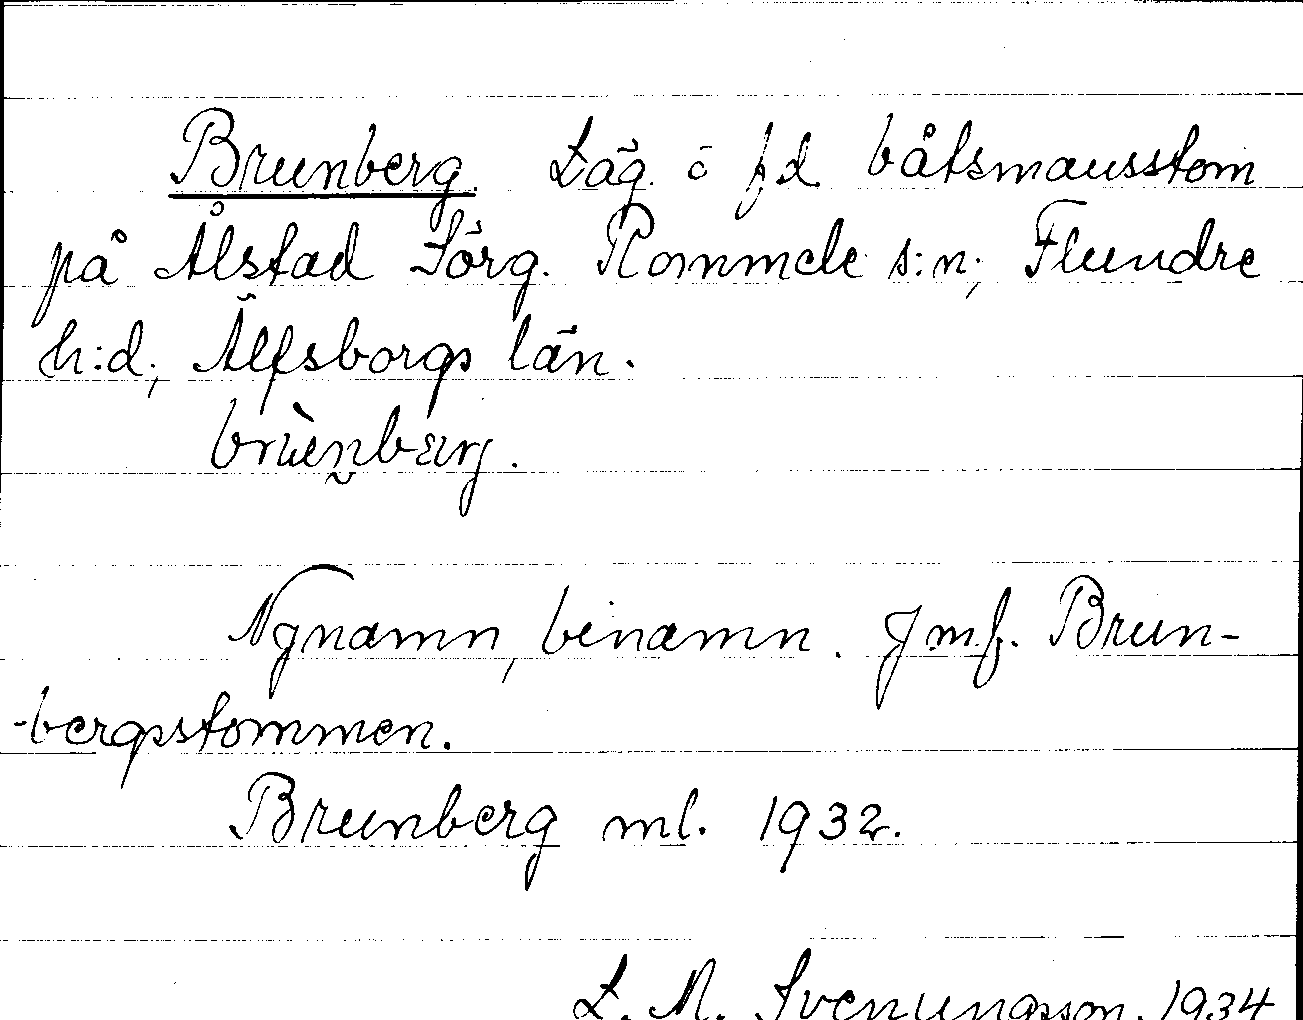 Brunberg. Läg. ö fd båtsmansstom
på Ålstad Sörg. Rommele s:n; Flundre
h:d; Älfsborgs län.
Nynamn, binamn. Jmf. Brun-
-bergsstommen.
Brunberg ml. 1932.
L. M. Svenungsson. 1934